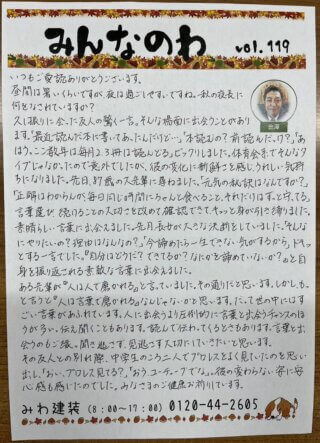 みんなのわ vol.119
いつもご愛読ありがとうございます。
昼間は暑いくらいですが、夜は過ごしやすいですね。秋の夜長に
何をなされていますか？
久し振りに会った友人の驚く一言。そんな場面に出会うことがあり
ます。「最近読んだ本に書いてあったんだけど…」「本読むの？前読んだっけ？」「あ
ほう。ここ数年は毎月2、3冊は読んどる」。ビックリしました。体育会系でそんなタ
イプじゃなかったので意外でしたが、彼の変化に新鮮さと感心、うれしい気持
ちになりました。先日、87歳の大先輩に尋ねました。「元気の秘訣はなんですか？」
「正解はわからんが、毎日同じ時間にちゃんと食べること。それだけはずっと守ってる。」
言葉選び、続けることの大切さを改めて確認できてキュッと身が引き締りました。
素晴らしい言葉に出会えました。先月長女が大きな決断をしていました。「そんな
にやりたいの？理由はなんなの？」「今諦めたら一生できない気がするから」ドキッ
とする一言でした。『自分はどうだ？できてるか？なにかを諦めていないか？』と自
身を振り返される素敵な言葉に出会えました。
ある先輩が『人は人で磨かれる』と言っていました。その通りだと思います。しかし、も
っと言うと『人は言葉で磨かれる』なんじゃないかと思います。だって世の中にはす
ごい言葉があふれています。人に出会うより圧倒的に言葉と出会うチャンスのほ
うが多い。伝え聞くこともあります。読んで伝わってくるときもあります。言葉と出
会うのもご縁。聞き逃さず、見逃さず大切にしていきたいと思います。
その友人との別れ際、中学生のころ二人でプロレスをよく見ていたのを思い
出し、「おい、プロレス見てる？」「おう、ユーチューブでな」。彼の変わらない姿に安
心感も感じたのでした。みなさまのご健康お祈りしています。
みわ建装 (8:00〜17:00) 0120-44-2605